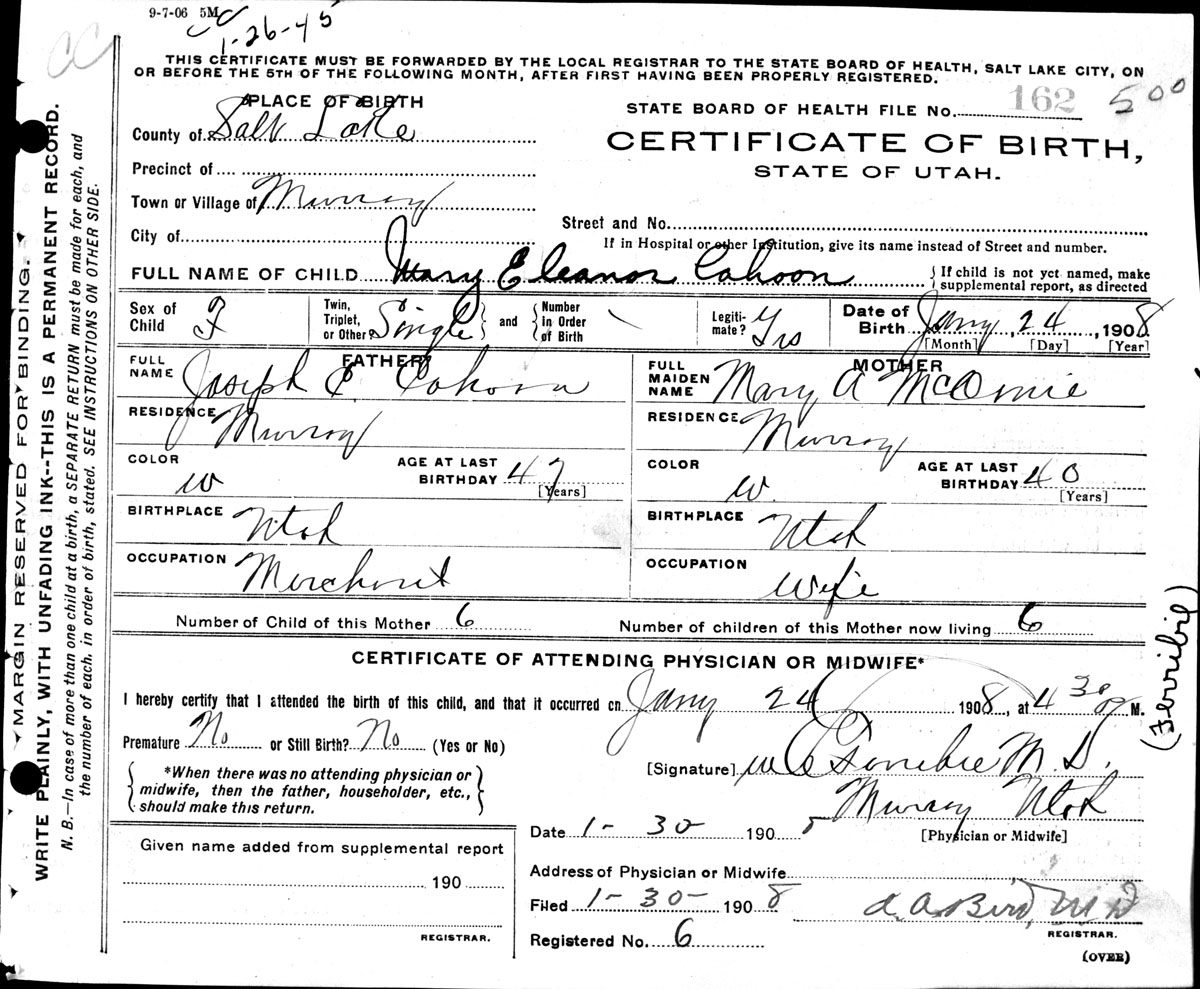 9-7-06 5M
CC
1-26-45
CC
THIS CERTIFICATE MUST BE FORWARDED BY THE LOCAL REGISTRAR TO THE STATE BOARD OF HEALTH, SALT LAKE CITY, ON
OR BEFORE THE 5TH OF THE FOLLOWING MONTH, AFTER FIRST HAVING BEEN PROPERLY REGISTERED.
PLACE OF BIRTH
STATE BOARD OF HEALTH FILE No. 162 500
County of Salt Lake
CERTIFICATE OF BIRTH,
STATE OF UTAH.
Precinct of
Town or Village of Murray
Street and No.
City of
If in Hospital or other Institution, give its name instead of Street and number.
FULL NAME OF CHILD Mary Eleanor Cahoon
If child is not yet named, make
supplemental report, as directed
Sex of Child F
Twin, Triplet, or Other? Single and Number in Order of Birth
Legiti-mate? Yrs
Date of Birth Jany 24, 1908
[Month] [Day] [Year]
FATHER
FULL NAME Joseph E. Cahoon
RESIDENCE Murray
COLOR w
AGE AT LAST BIRTHDAY 47
[Years]
BIRTHPLACE Utah
OCCUPATION Merchant
MOTHER
FULL MAIDEN NAME Mary A McOmie
RESIDENCE Murray
COLOR w.
AGE AT LAST BIRTHDAY 40
[Years]
BIRTHPLACE Utah
OCCUPATION Wife
Number of Child of this Mother 6
Number of children of this Mother now living 6
CERTIFICATE OF ATTENDING PHYSICIAN OR MIDWIFE*
I hereby certify that I attended the birth of this child, and that it occurred on Jany 24 1908, at 4 30 P M.
Premature No or Still Birth? No (Yes or No)
*When there was no attending physician or
midwife, then the father, householder, etc.,
should make this return.
[Signature] M. D.
Murray Utah
[Physician or Midwife]
Date 1-30- 1908
Given name added from supplemental report
190
REGISTRAR.
Address of Physician or Midwife
Filed 1-30- 1908
D. A. Bird, M D
REGISTRAR.
Registered No. 6
(OVER)
(Ferribie)
MARGIN RESERVED FOR BINDING.
WRITE PLAINLY, WITH UNFADING INK--THIS IS A PERMANENT RECORD.
N. B.—In case of more than one child at a birth, a SEPARATE RETURN must be made for each, and
the number of each, in order of birth, stated. SEE INSTRUCTIONS ON OTHER SIDE.